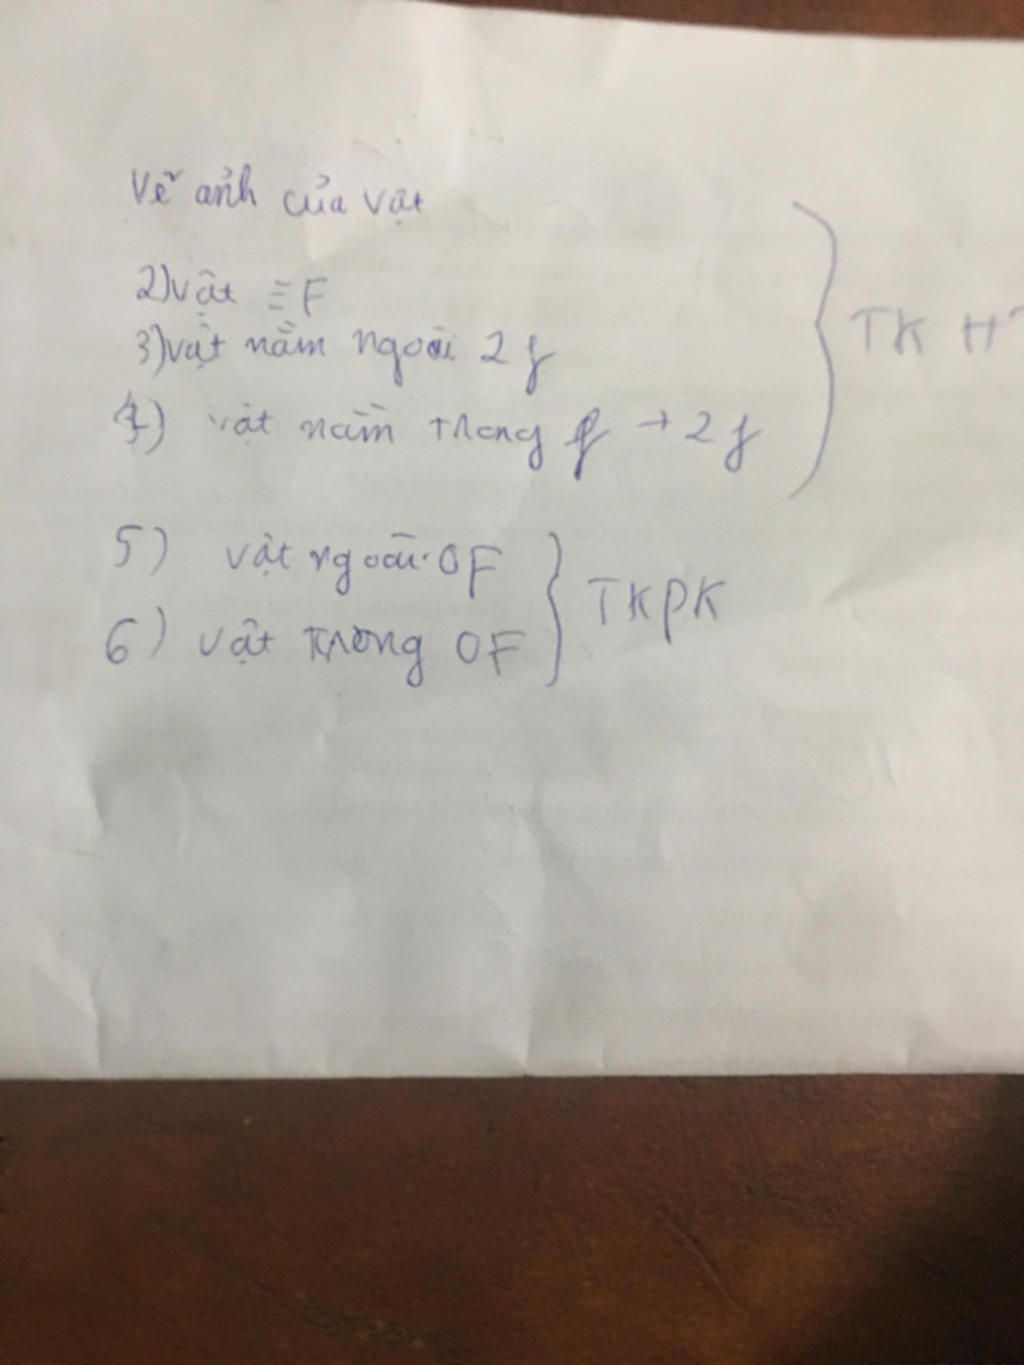 Vẽ ảnh của vật
2) vật ≡ F
3) vật nằm ngoài 2f
4) vật nằm trong f → 2f
TK H
5) vật ngoài OF
6) vật trong OF
TKPK